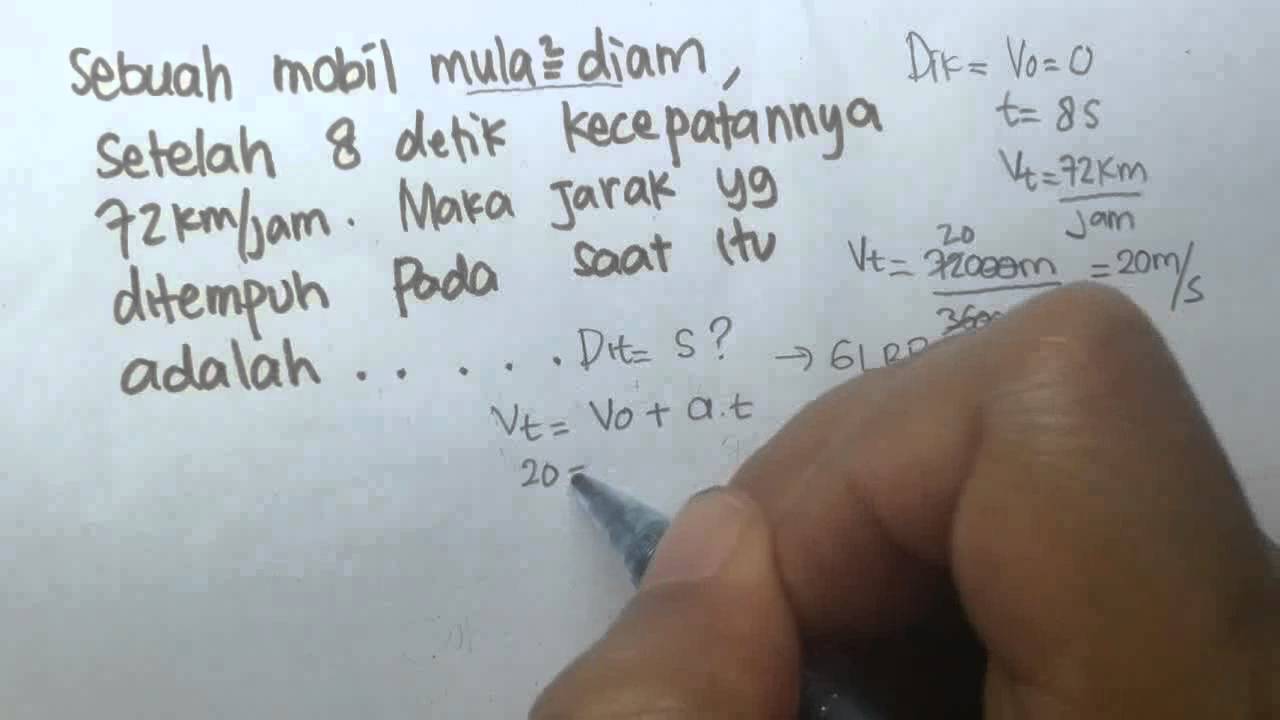 Sebuah mobil mula² diam,
Setelah 8 detik kecepatannya
72 km/jam. Maka jarak yg
ditempuh pada saat itu
adalah . . . . . .
Dik = Vo = 0
t = 8s
Vt = 72 km
jam
20
Vt = 72000m = 20 m/s
Dit = S?
Vt = Vo + a.t
20 =